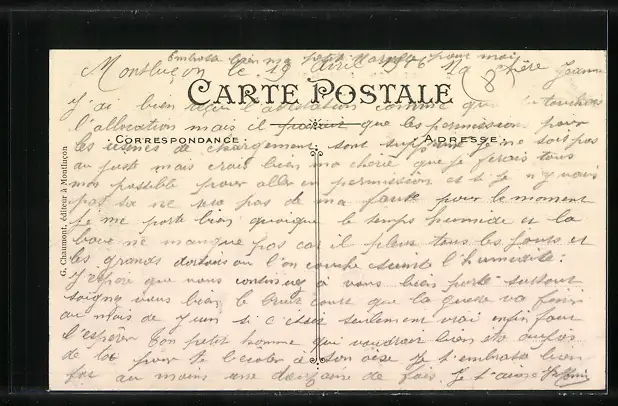 Embrasse bien ma petite pour moi
Montluçon le 19 avril 1916 Ma chère Jeanne
(8)
CARTE POSTALE
J'ai bien reçu l'attestation comme que tu touchais
l'allocation mais il parait que les permissions pour
CORRESPONDANCE
ADRESSE
les usines de chargement sont supprimé je ne sais pas
au juste mais crois bien ma chérie que je ferais tous
mon possible pour aller en permission et si je n'y vais
pas sa ne sera pas de ma faute pour le moment
je me porte bien quoique le temps humide et la
boue ne manque pas car il pleut tous les jours et
les grands dortois ou l'on couche l'humidité.
J'espère que vous continuez à vous bien porté surtout
soignez vous bien le bruit court que la guerre va finir
au mois de Juin si c'était seulement vrai enfin pour
l'espérer Ton petit homme qui voudrait bien etre auprès
de toi pour à son aise Je t'embrasse bien
fort au moins une douzaine de fois. Je t'aime
G. Chaumont, éditeur à Montluçon